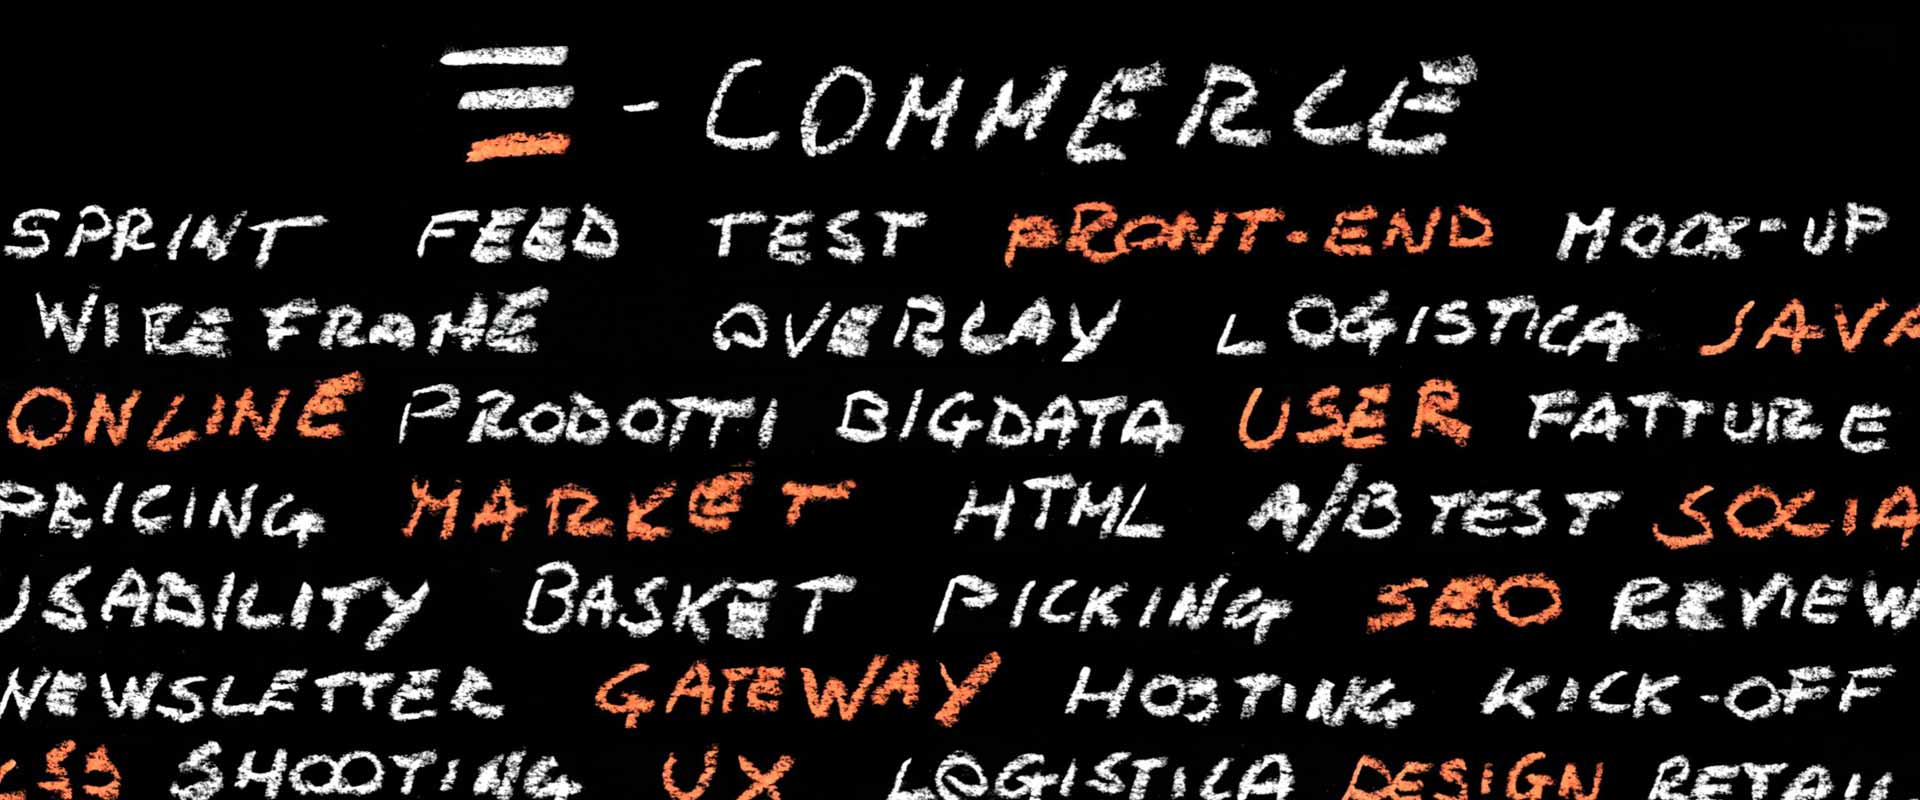 E-COMMERCE
SPRINT FEED TEST FRONT-END MOCK-UP
WIREFRAME OVERLAY LOGISTICA JAVA
ONLINE PRODOTTI BIGDATA USER FATTURE
PRICING MARKET HTML A/B TEST SOCIA
USABILITY BASKET PICKING SEO REVIEW
NEWSLETTER GATEWAY HOSTING KICK-OFF
CSS SHOOTING UX LOGISTICA DESIGN RETAIL